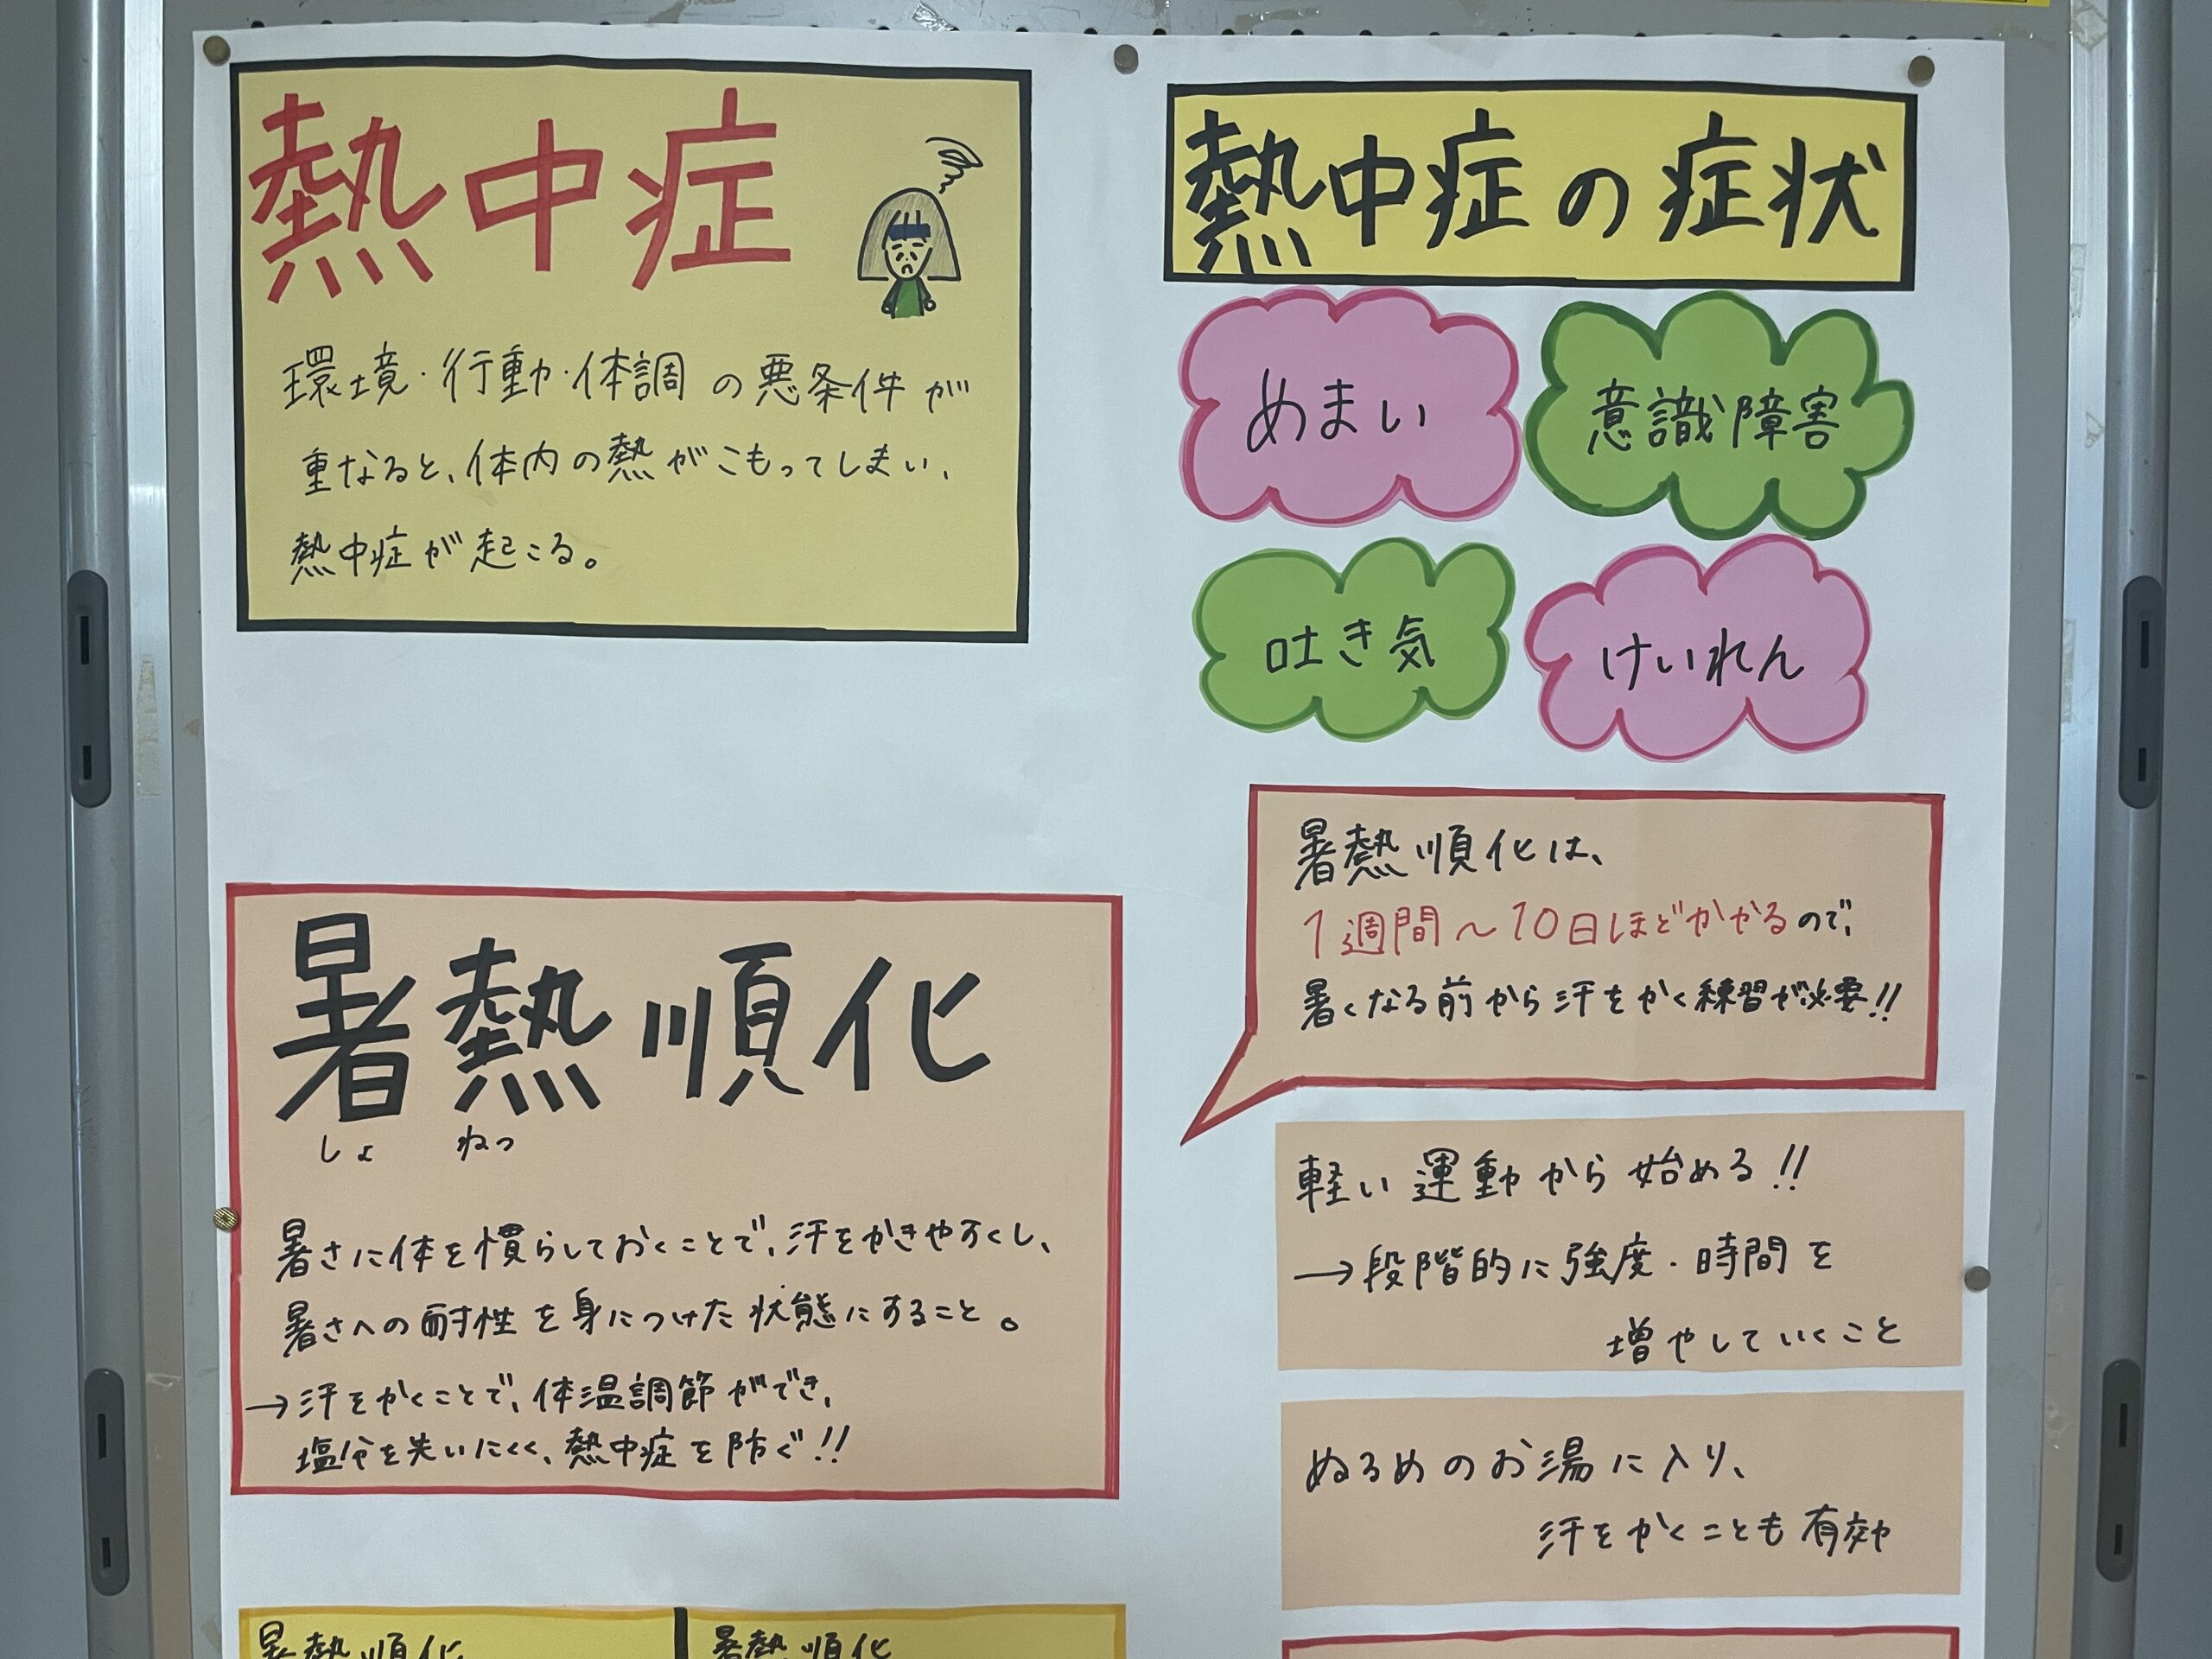 熱中症
環境・行動・体調の悪条件が
重なると、体内の熱がこもってしまい、
熱中症が起こる。
熱中症の症状
めまい
意識障害
吐き気
けいれん
暑熱順化
しょ ねつ
暑さに体を慣らしておくことで、汗をかきやすくし、
暑さへの耐性を身につけた状態にすること。
→汗をかくことで、体温調節ができ、
塩分を失いにくく、熱中症を防ぐ!!
暑熱順化は、
1週間～10日ほどかかるので、
暑くなる前から汗をかく練習が必要!!
軽い運動から始める!!
→段階的に強度・時間を
増やしていくこと
ぬるめのお湯に入り、
汗をかくことも有効
暑熱順化
暑熱順化